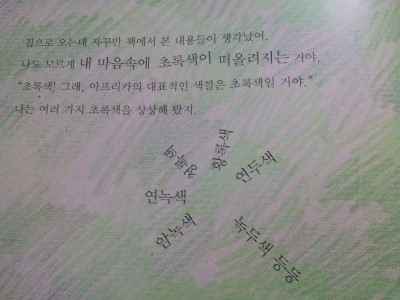 집으로 오는데 자꾸만 책에서 본 내용들이 생각났어.
나도 모르게 내 마음속에 초록색이 떠올려지는 거야.
“초록색! 그래, 아프리카의 대표적인 색깔은 초록색일 거야.”
나는 여러 가지 초록색을 상상해 봤지.
청록색
황록색
연두색
연녹색
암녹색
녹두색 등등